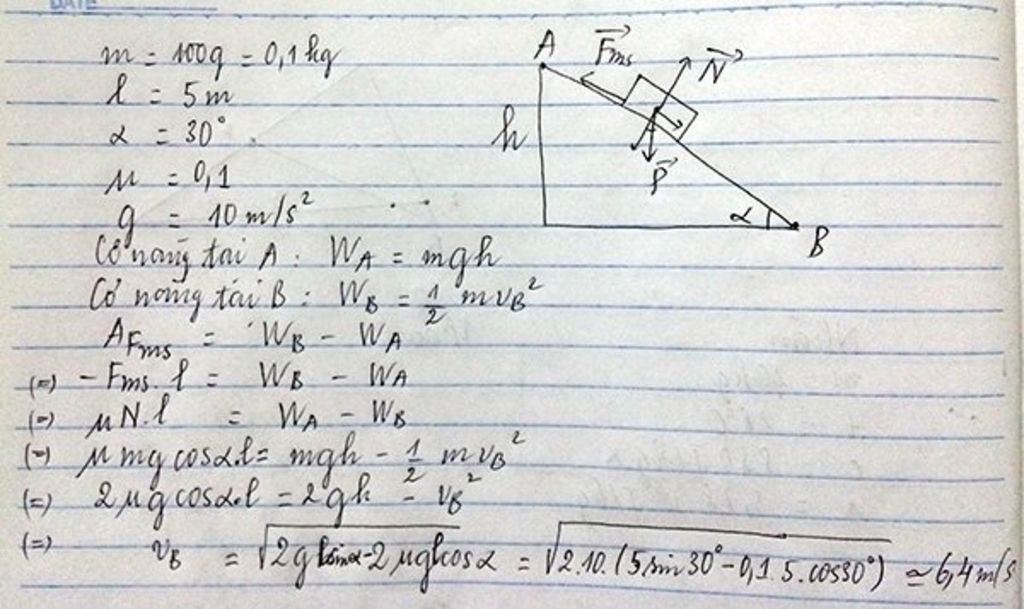 DATE
m = 100g = 0,1 kg
l = 5 m
α = 30°
μ = 0,1
g = 10 m/s²
A
Fms
N
h
P
α
B
Cơ năng tại A : W_A = mgh
Cơ năng tại B : W_B = 1/2 m v_B²
A_Fms = W_B - W_A
(=) - Fms. l = W_B - W_A
(=) μN.l = W_A - W_B
(=) μ mg cosα.l = mgh - 1/2 m v_B²
(=) 2μg cosα.l = 2gh - v_B²
(=) v_B = √2g l sinα - 2μgl cosα = √2.10.(5 sin 30° - 0,1.5.cos30°) ≃ 6,4 m/s